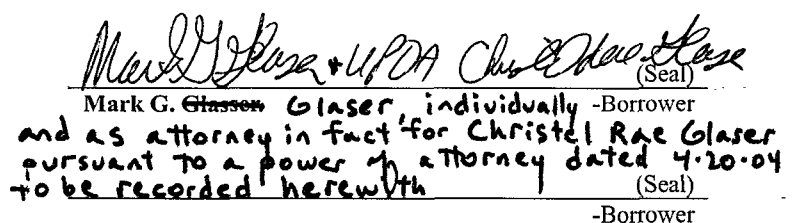 Mark G Glaser + UPOA Christel Rae Glase
(Seal)
Mark G. Glasser Glaser, individually -Borrower
and as attorney in fact for Christel Rae Glaser
pursuant to a power of attorney dated 4.20.04
to be recorded herewith (Seal)
-Borrower